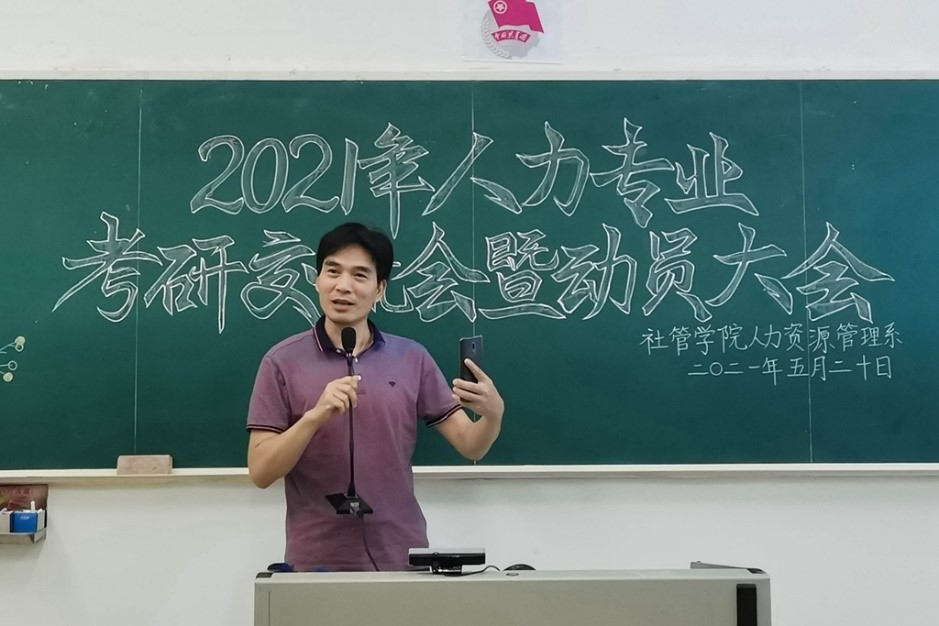 中国共青团
2021年人力专业
考研交流会暨动员大会
社管学院人力资源管理系
二〇二一年五月二十日